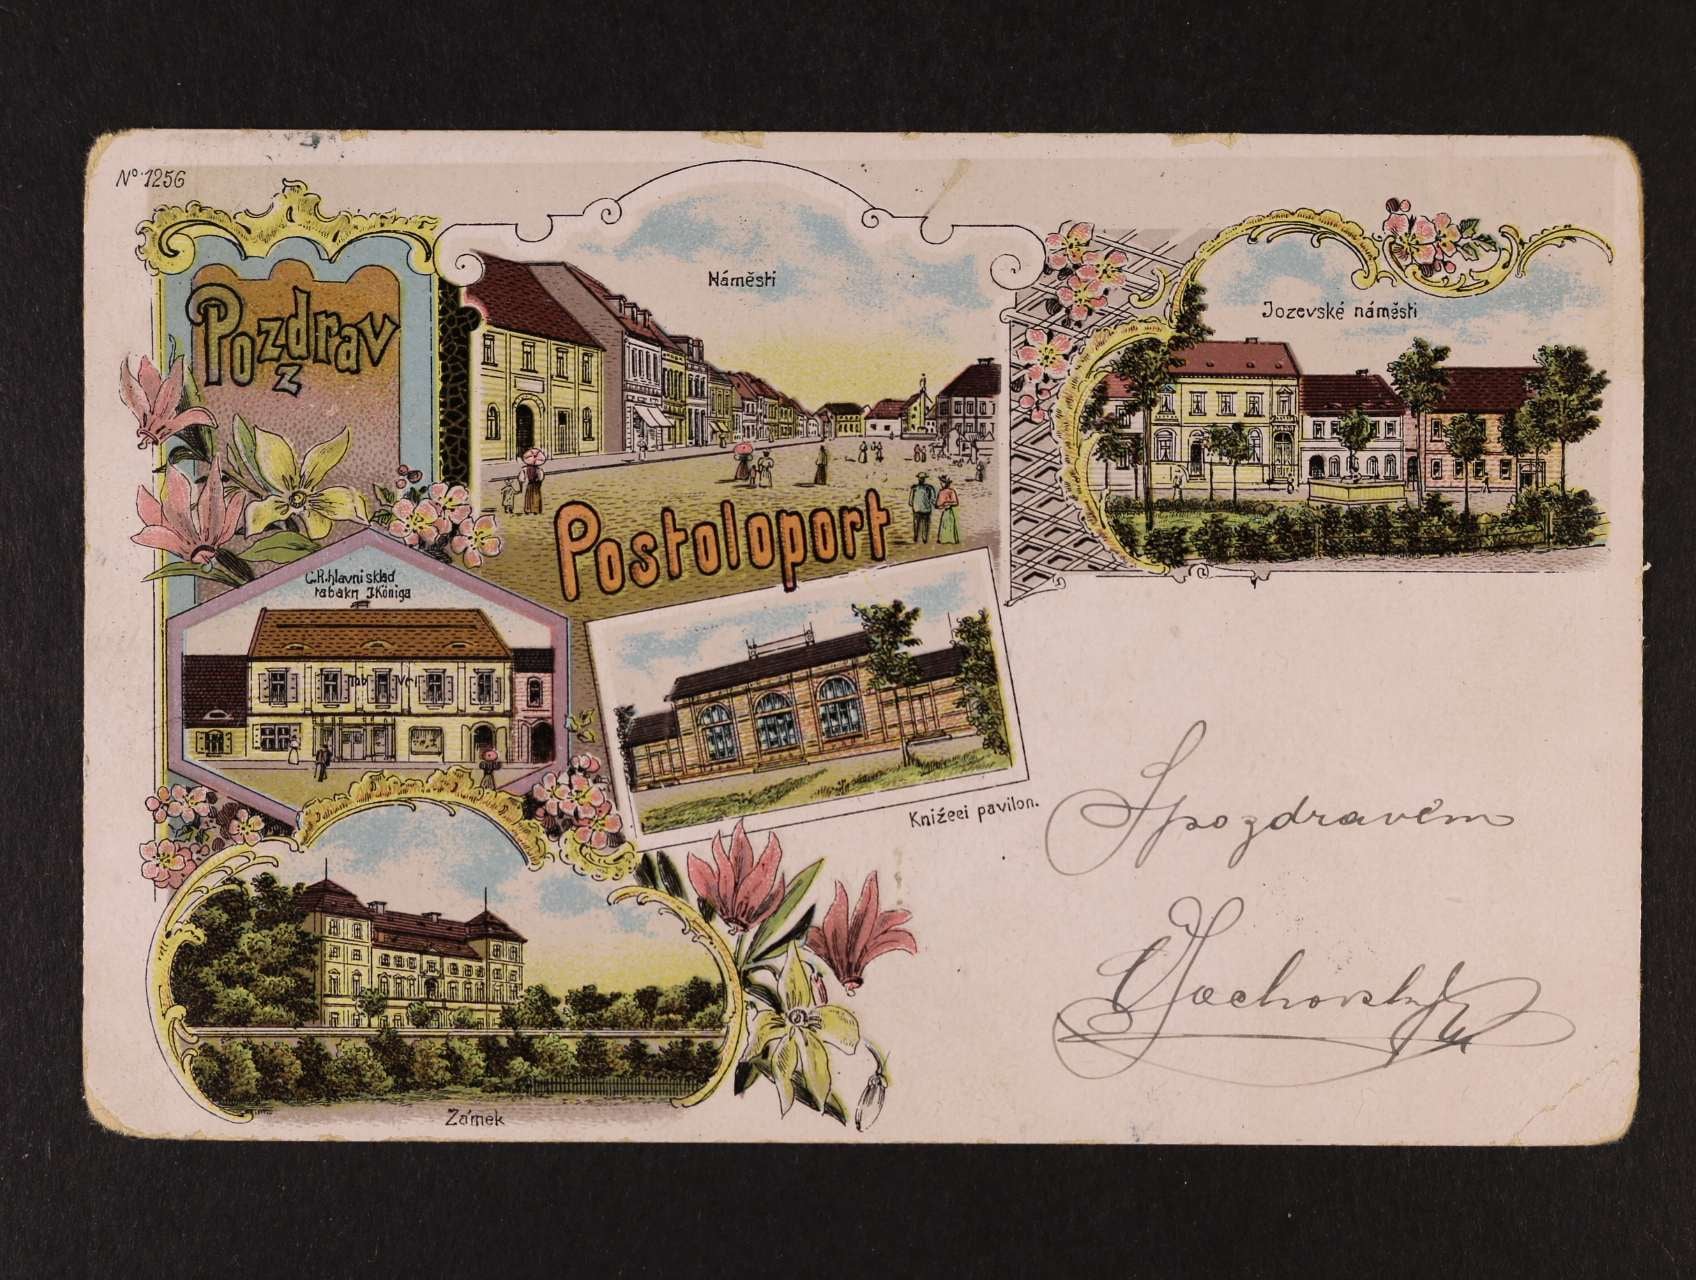 No 1256
Pozdrav
z
Náměsti
Jozevské náměsti
Postoloport
C.R. hlavni sklad
tabakn J. Königa
Tab
Knižeei pavilon.
Zámek
S pozdravém